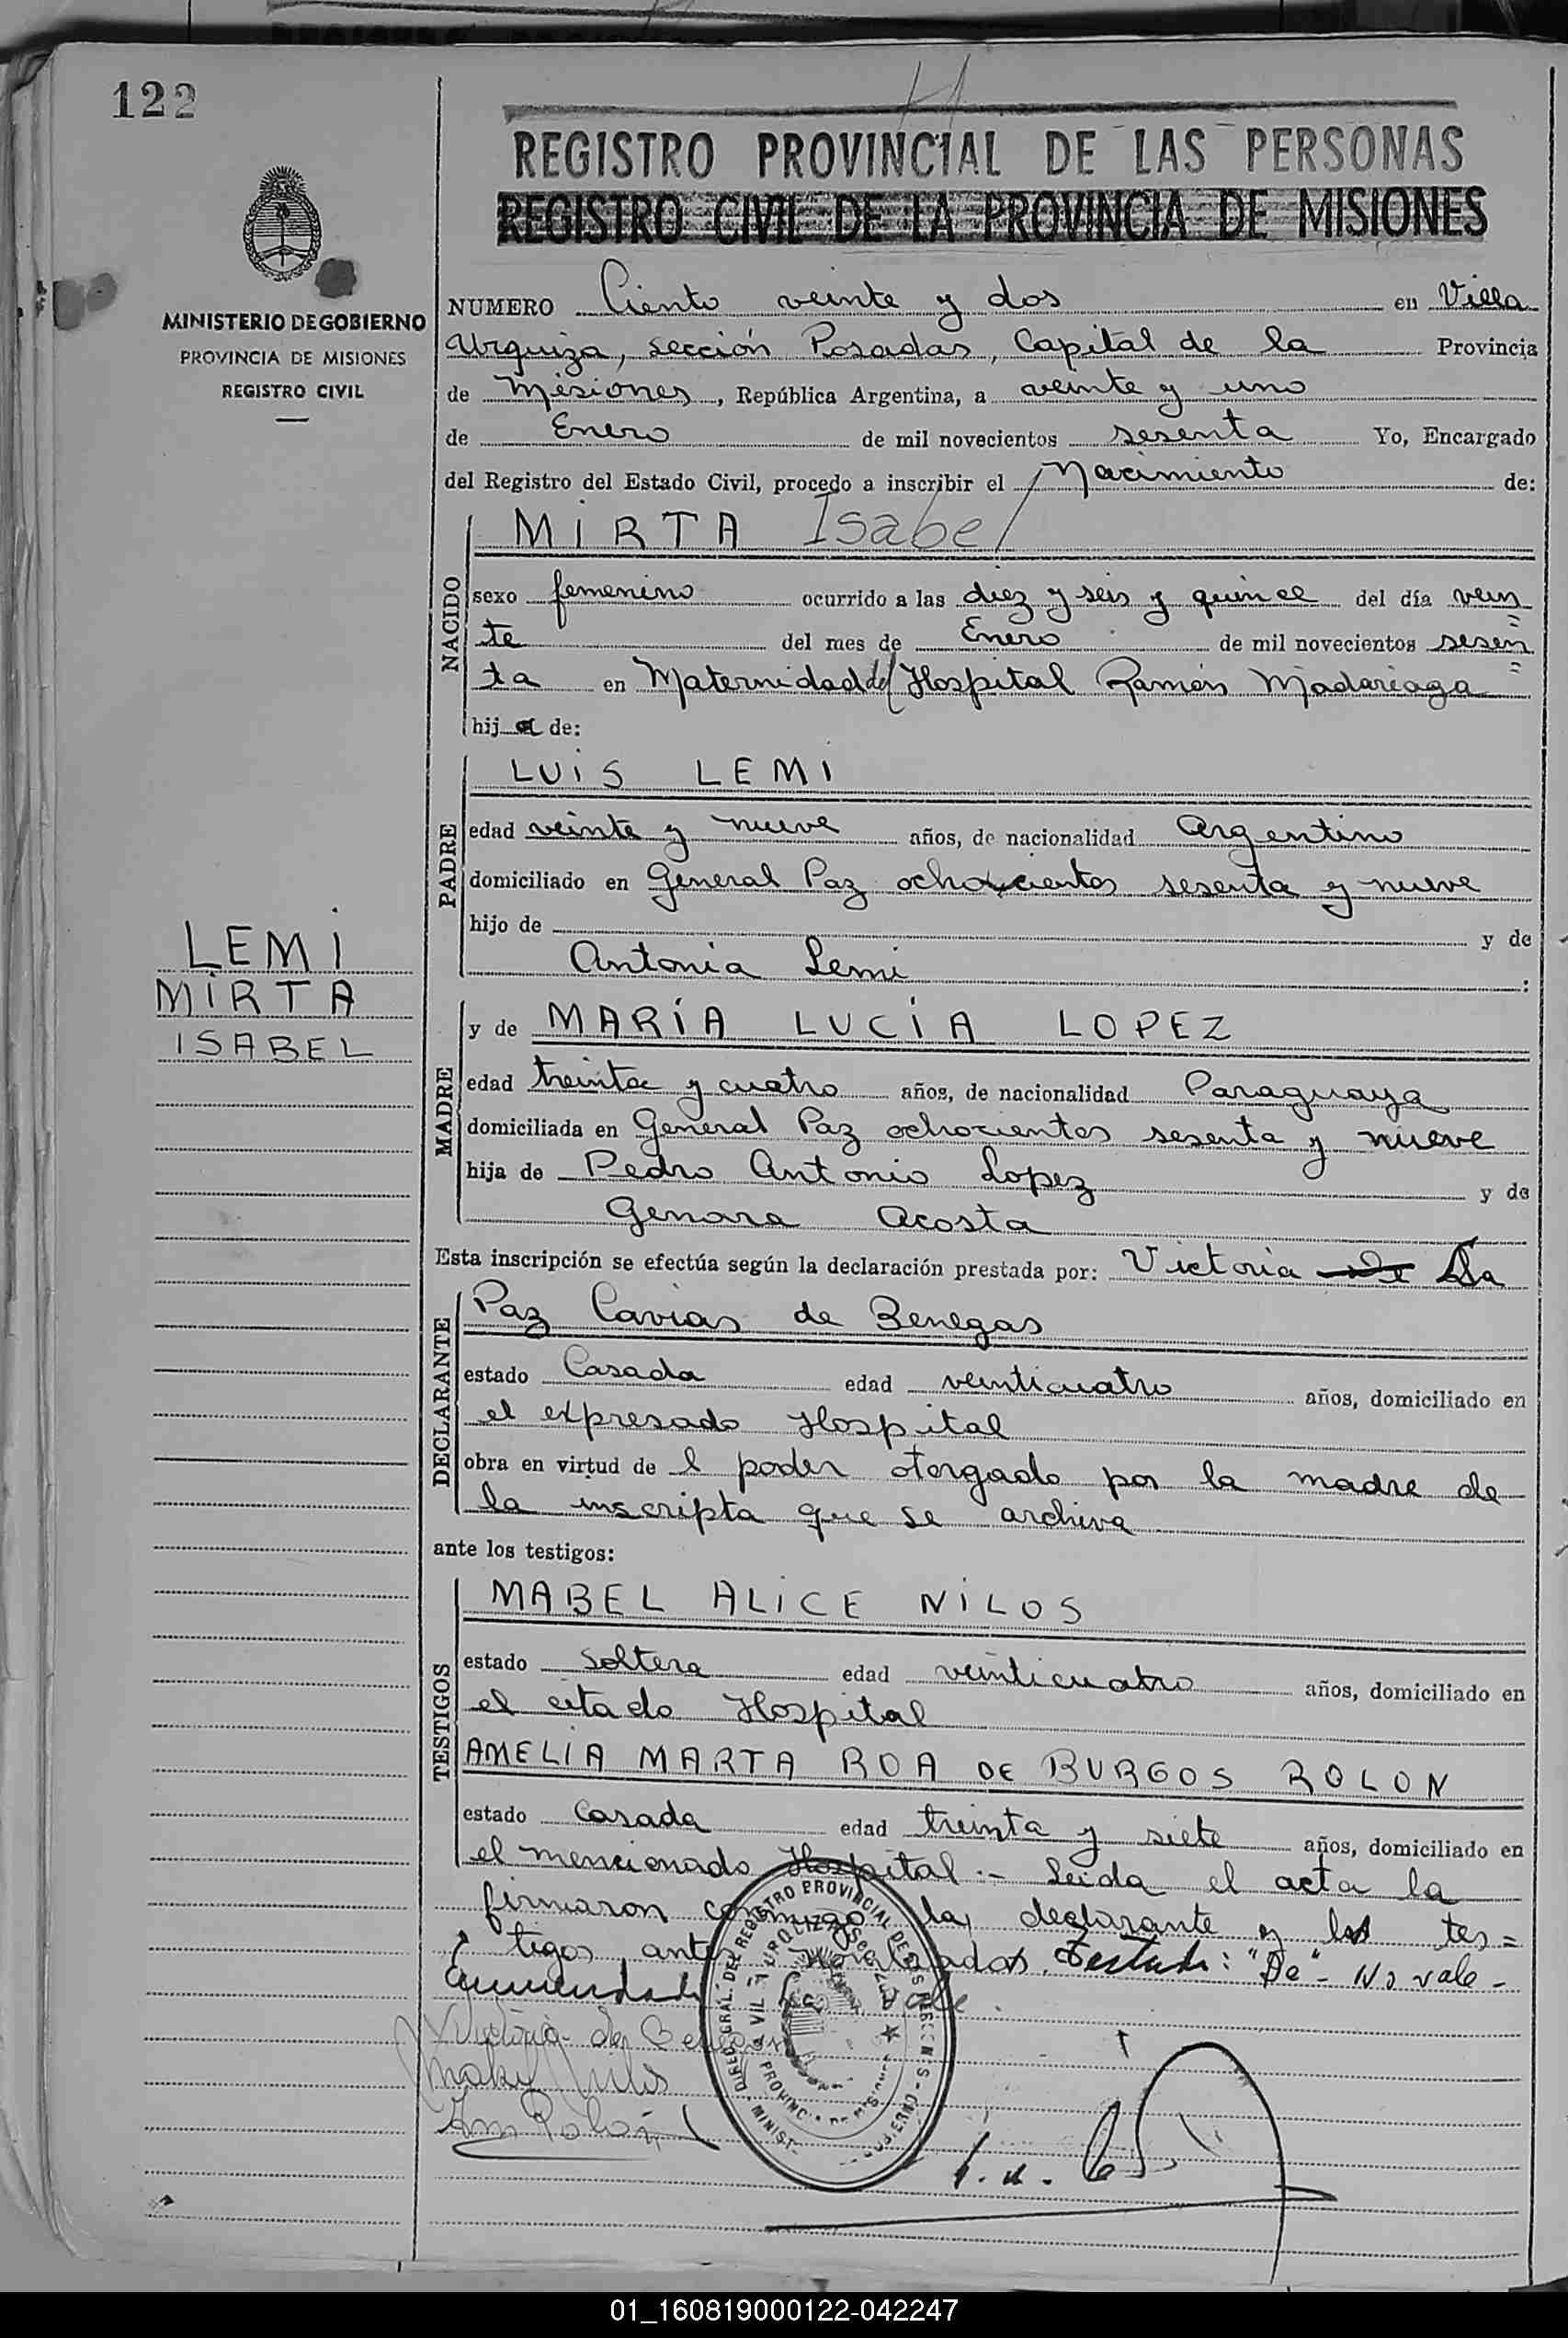 122
REGISTRO PROVINCIAL DE LAS PERSONAS
REGISTRO CIVIL DE LA PROVINCIA DE MISIONES
MINISTERIO DE GOBIERNO
PROVINCIA DE MISIONES
REGISTRO CIVIL
NUMERO Ciento veinte y dos en Villa
Urquiza, sección Posadas, Capital de la Provincia
de Misiones, República Argentina, a veinte y uno
de Enero de mil novecientos sesenta Yo, Encargado
del Registro del Estado Civil, procedo a inscribir el Nacimiento de:
NACIDO
MIRTA Isabel
sexo femenino ocurrido a las diez y seis y quince del día vein=
te del mes de Enero de mil novecientos sesen=
ta en Maternidad del Hospital Ramón Madariaga
hija de:
PADRE
LUIS LEMI
edad veinte y nueve años, de nacionalidad Argentino
domiciliado en General Paz ochocientos sesenta y nueve
hijo de y de
Antonia Lemi :
LEMI
MIRTA
ISABEL
MADRE
y de MARÍA LUCÍA LOPEZ
edad treinta y cuatro años, de nacionalidad Paraguaya
domiciliada en General Paz ochocientos sesenta y nueve
hija de Pedro Antonio Lopez y de
Genara Acosta
Esta inscripción se efectúa según la declaración prestada por: Victoria de La
DECLARANTE
Paz Cavias de Benegas
estado Casada edad veinticuatro años, domiciliado en
el expresado Hospital
obra en virtud de l poder otorgado por la madre de
la inscripta que se archiva
ante los testigos:
TESTIGOS
MABEL ALICE NILOS
estado Soltera edad veinticuatro años, domiciliado en
el citado Hospital
AMELIA MARTA ROA DE BURGOS ROLON
estado Casada edad treinta y siete años, domiciliado en
el mencionado Hospital.- Leida el acta la
firmaron conmigo la declarante y los tes=
tigos antes nombrados. Testado: "De" - No vale -
Enmendado vale.
Victoria de
01_160819000122-042247